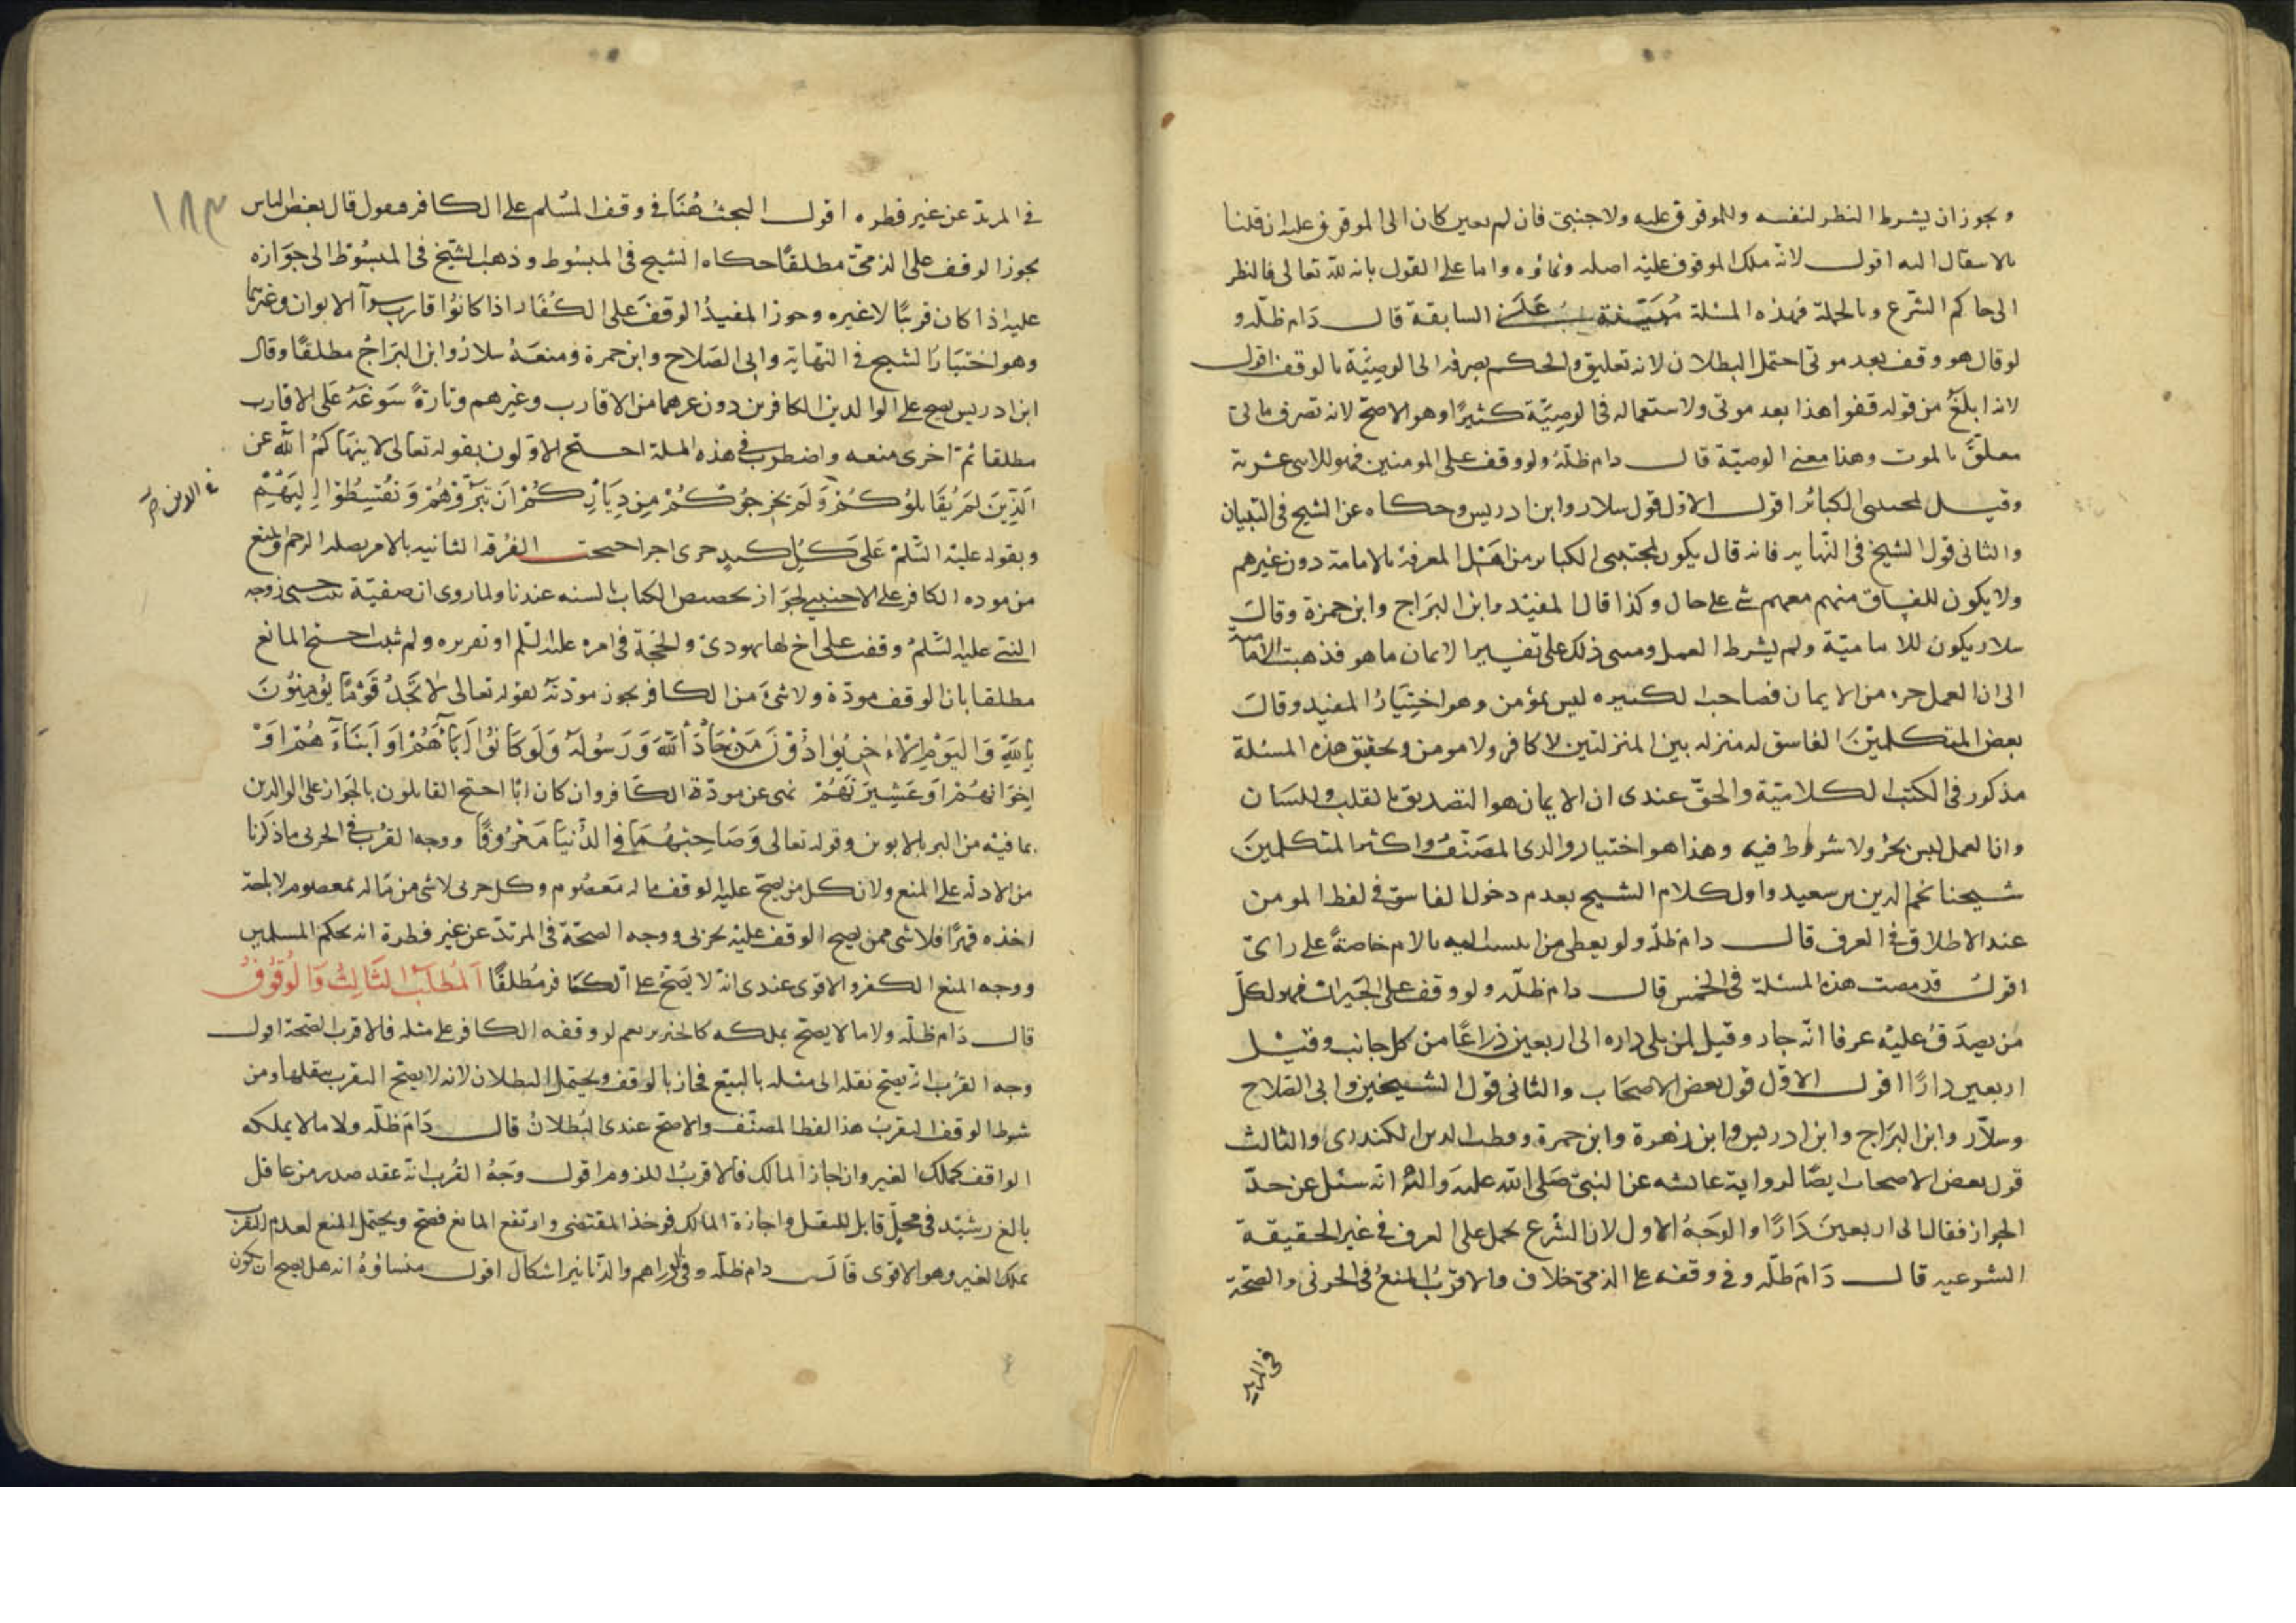 ويجوز ان يشرط النظر لنفسه وللموقوف عليه ولاجنبي فان لم يعين كان الى الموقوف عليه ان قلنا
بالانتقال اليه اقول لانه ملك الموقوف عليه اصله ونماؤه واما على القول بانه لله تعالى فالنظر
الى حاكم الشرع وبالجملة فهذه المسئلة مبنية على السابقة قال دام ظله و
لو قال هو وقف بعد موتى احتمل البطلان لانه تعليق والحكم بصرفه الى الوصية بالوقف اقول
لانه ابلغ من قوله قفوا هذا بعد موتى ولاستعماله فى الوصية كثيرا وهو الاصح لانه تصرف مالى
معلق بالموت وهذا معنى الوصية قال دام ظله ولو وقف على المومنين فهو للاثنى عشرية
وقيل لمجتنبى الكبائر اقول الاول قول سلار وابن ادريس وحكاه عن الشيخ فى التبيان
والثانى قول الشيخ فى النهاية فانه قال يكون لمجتنبى الكبائر من اهل المعرفة بالامامة دون غيرهم
ولا يكون للفساق منهم معهم شى على حال وكذا قال المفيد وابن البراج وابن حمزة وقال
سلار يكون للامامية ولم يشرط العمل ومبنى ذلك على تفسير الايمان ما هو فذهبت
الى ان العمل جزء من الايمان فصاحب الكبيرة ليس بمؤمن وهو اختيار المفيد وقال
بعض المتكلمين الفاسق له منزلة بين المنزلتين لا كافر ولا مومن وتحقيق هذه المسئلة
مذكور فى الكتب الكلامية والحق عندى ان الايمان هو التصديق بالقلب واللسان
وان العمل ليس بجزء ولا شرط فيه وهذا هو اختيار والدى المصنف واكثر المتكلمين
شيخنا نجم الدين بن سعيد واول كلام الشيخ بعدم دخول الفاسق فى لفظ المومن
عند الاطلاق فى العرف قال دام ظله ولو يعطى من انتسب اليه بالام خاصة على راى
اقول قد مضت هذه المسئلة فى الخمس قال دام ظله ولو وقف على الجيران فهو لكل
من يصدق عليه عرفا انه جار وقيل لمن يلى داره الى اربعين ذراعا من كل جانب وقيل
اربعين دارا اقول الاول قول بعض الاصحاب والثانى قول الشيخين وابى الصلاح
وسلار وابن البراج وابن ادريس وابن زهرة وابن حمزة وقطب الدين الكندرى والثالث
قول بعض الاصحاب ايضا لرواية عائشه عن النبى صلى الله عليه واله انه سئل عن حد
الجوار فقال الى اربعين دارا والوجه الاول لان الشرع يحمل على العرف فى غير الحقيقة
الشرعيه قال دام ظله وفى وقفه على الذمى خلاف والاقرب المنع فى الحربى والصحة
فى المرتد
١٨٣
فى المرتد عن غير فطره اقول البحث هنا فى وقف المسلم على الكافر فنقول قال بعض الناس
يجوز الوقف على الذمى مطلقا حكاه الشيخ فى المبسوط وذهب الشيخ فى المبسوط الى جوازه
عليه اذا كان قريبا لا غيره وجوز المفيد الوقف على الكفار اذا كانوا اقارب سواء الابوان وغيرهما
وهو اختيار الشيخ فى النهاية وابى الصلاح وابن حمزة ومنعه سلار وابن البراج مطلقا وقال
ابن ادريس يصح على الوالدين الكافرين دون غيرهما من الاقارب وغيرهم وتارة سوغه على الاقارب
مطلقا ثم اخرى منعه واضطرب فى هذه المسلة احتج الاولون بقوله تعالى لا ينهاكم الله عن
الذين لم يقاتلوكم ولم يخرجوكم من دياركم ان تبروهم وتقسطوا اليهم
فى الدين صح
وبقوله عليه السلم على كل كبد حرى اجر احتجت الفرقه الثانيه بالامر بصلة الرحم والمنع
من موده الكافر على الاجنبى لجواز تخصيص الكتاب بالسنه عندنا ولما روى ان صفيه بنت حيى زوجه
النبى عليه السلم وقفت على اخ لها يهودى والحجة فى امره عليه السلم او تقريره ولم ثبت احتج المانع
مطلقا بان الوقف مودة ولا شى من الكافر يجوز مودته لقوله تعالى لا تجد قوما يؤمنون
بالله واليوم الاخر يوادون من حاد الله ورسوله ولو كانوا اباءهم او ابناءهم او
اخوانهم او عشيرتهم نهى عن مودة الكافر وان كان ابا احتج القايلون بالجواز على الوالدين
بما فيه من البر بالابوين وقوله تعالى وصاحبهما فى الدنيا معروفا ووجه القرب فى الحربى ما ذكرنا
من الادلة على المنع ولان كل من يصح عليه الوقف ماله معصوم وكل حربى لا شى من ماله بمعصوم لاباحة
اخذه قهرا فلا شى ممن يصح الوقف عليه بحربى ووجه الصحة فى المرتد عن غير فطرة انه بحكم المسلمين
ووجه المنع الكفر والاقوى عندى انه لا يصح على الكافر مطلقا المطلب الثالث والوقوف
قال دام ظله ولا ما لا يصح تملكه كالخنزير نعم لو وقفه الكافر على مثله فالاقرب الصحة اول
وجه القرب انه يصح نقله الى مثله بالبيع فجاز بالوقف ويحتمل البطلان لانه لا يصح التقرب بنقلها ومن
شرط الوقف التقرب هذا لفظ المصنف والاصح عندى البطلان قال دام ظله ولا ما لا يملكه
الواقف كملك الغير وان اجاز المالك فالاقرب اللزوم اقول وجه القرب انه عقد صدر من عاقل
بالغ رشيد فى محل قابل للنقل واجازة المالك فوجد المقتضى وارتفع المانع فصح ويحتمل المنع لعدم التقرب
بملك الغير وهو الاقوى قال دام ظله وفى الدراهم والدنانير اشكال اقول منشاؤه انه هل يصح ان يكون